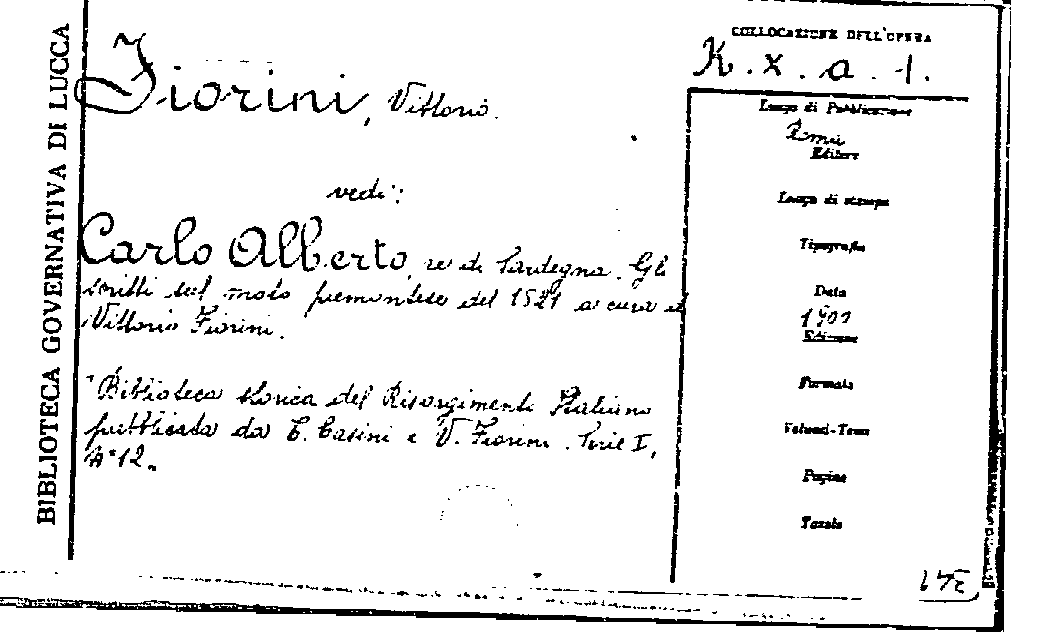 BIBLIOTECA GOVERNATIVA DI LUCCA
Fiorini, Vittorio.
vedi:
Carlo Alberto, re di Sardegna. Gli
scritti sul moto piemontese del 1821 a cura di
Vittorio Fiorini.
"Biblioteca storica del Risorgimento Italiano
pubblicata da T. Casini e V. Fiorini. Serie I,
N° 12.
COLLOCAZIONE DELL'OPERA
K. x. a. 1.
Luogo di Pubblicazione
Roma
Editore
Luogo di stampa
Tipografia
Data
Edizione
Formato
Volumi-Tomo
Pagine
Tavole